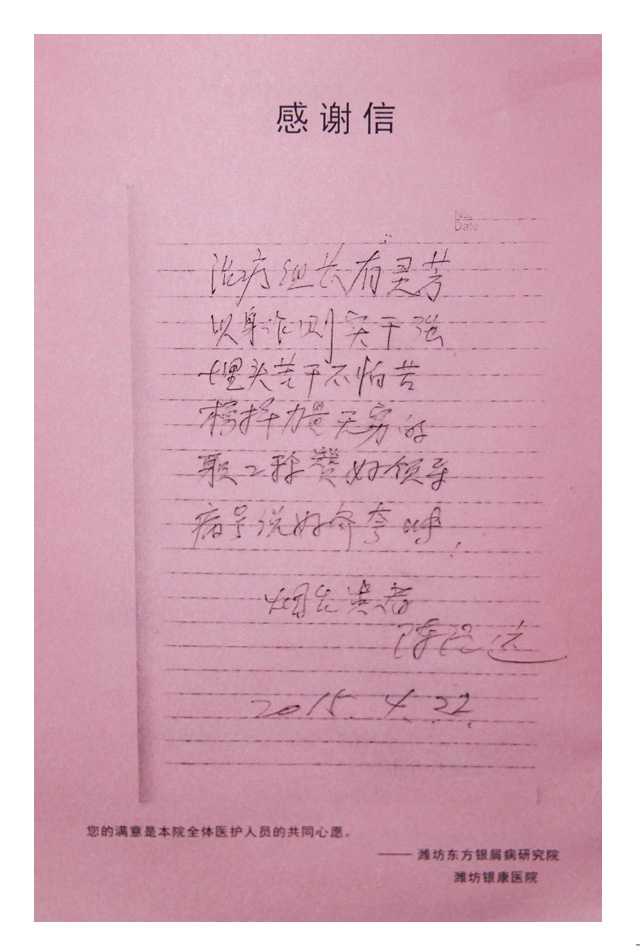 感谢信
No.
Date
治病组长有灵芳
以身作则实干强
埋头苦干不怕苦
榜样力量无穷的
职工称赞好领导
病号说好齐夸呼!
烟台患者
陈
2015.4.22
您的满意是本院全体医护人员的共同心愿。
——潍坊东方银屑病研究院
潍坊银康医院